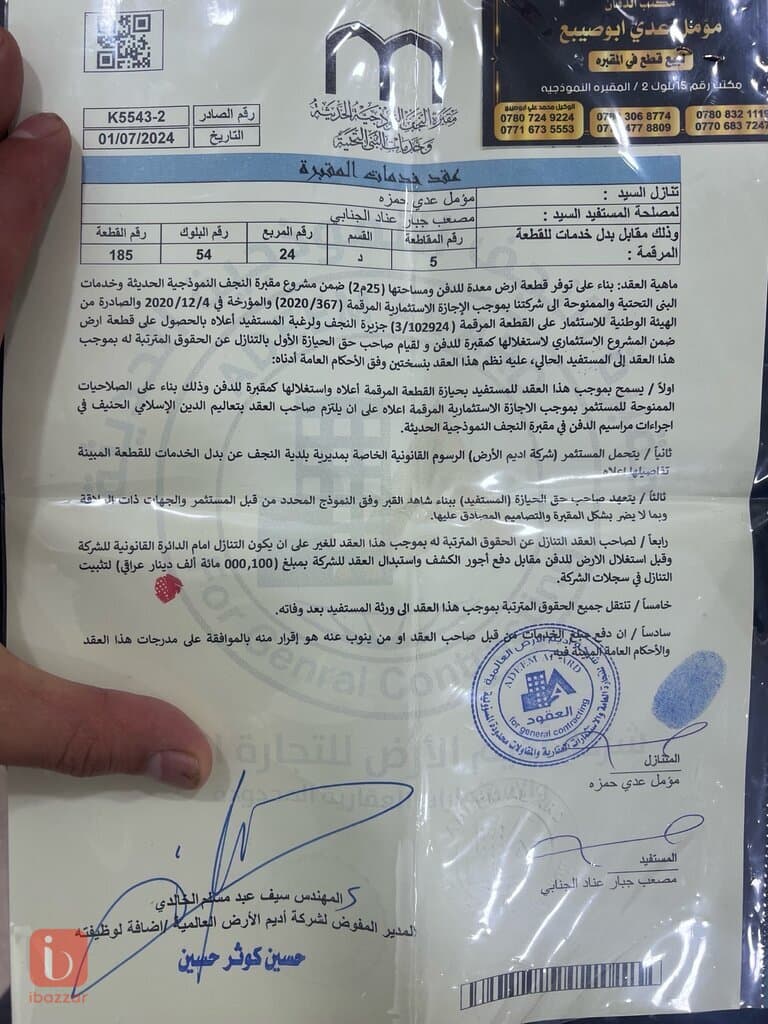 مكتب الدفان
مؤمل عدي ابوصيبع
لبيع قطع في المقبره
مكتب رقم 15 بلوك 2 / المقبره النموذجيه
الوكيل محمد علي ابوصيبع
0780 724 9224
0771 673 5553
306 8774
477 8809
0780 832 1119
0770 683 7247
مقبرة النجف النموذجية الحديثة
وخدمات البنى التحتية
رقم الصادر
K5543-2
التاريخ
01/07/2024
عقد خدمات المقبرة
تنازل السيد :
مؤمل عدي حمزه
لمصلحة المستفيد السيد :
مصعب جبار عناد الجنابي
وذلك مقابل بدل خدمات للقطعة
المرقمة :
رقم المقاطعة القسم رقم المربع رقم البلوك رقم القطعة
5 د 24 54 185
ماهية العقد: بناء على توفر قطعة ارض معدة للدفن ومساحتها (25م2) ضمن مشروع مقبرة النجف النموذجية الحديثة وخدمات
البنى التحتية والممنوحة الى شركتنا بموجب الإجازة الاستثمارية المرقمة (2020/367) والمؤرخة في 2020/12/4 والصادرة من
الهيئة الوطنية للاستثمار على القطعة المرقمة (3/102924) جزيرة النجف ولرغبة المستفيد أعلاه بالحصول على قطعة ارض
ضمن المشروع الاستثماري لاستغلالها كمقبرة للدفن و لقيام صاحب حق الحيازة الأول بالتنازل عن الحقوق المترتبة له بموجب
هذا العقد إلى المستفيد الحالي, عليه نظم هذا العقد بنسختين وفق الأحكام العامة أدناه:
اولاً / يسمح بموجب هذا العقد للمستفيد بحيازة القطعة المرقمة أعلاه واستغلالها كمقبرة للدفن وذلك بناء على الصلاحيات
الممنوحة للمستثمر بموجب الاجازة الاستثمارية المرقمة اعلاه على ان يلتزم صاحب العقد بتعاليم الدين الإسلامي الحنيف في
اجراءات مراسيم الدفن في مقبرة النجف النموذجية الحديثة.
ثانياً / يتحمل المستثمر (شركة اديم الأرض) الرسوم القانونية الخاصة بمديرية بلدية النجف عن بدل الخدمات للقطعة المبينة
تفاصيلها اعلاه
ثالثاً / يتعهد صاحب حق الحيازة (المستفيد) ببناء شاهد القبر وفق النموذج المحدد من قبل المستثمر والجهات ذات العلاقة
وبما لا يضر بشكل المقبرة والتصاميم المصادق عليها.
رابعاً / لصاحب العقد التنازل عن الحقوق المترتبة له بموجب هذا العقد للغير على ان يكون التنازل امام الدائرة القانونية للشركة
وقبل استغلال الارض للدفن مقابل دفع أجور الكشف واستبدال العقد للشركة بمبلغ (000,100 مائة ألف دينار عراقي) لتثبيت
التنازل في سجلات الشركة.
خامساً / تنتقل جميع الحقوق المترتبة بموجب هذا العقد الى ورثة المستفيد بعد وفاته.
سادساً / ان دفع مبلغ الخدمات من قبل صاحب العقد او من ينوب عنه هو إقرار منه بالموافقة على مدرجات هذا العقد
والأحكام العامة المبينة فيه.
ADEEM ALARD
العقود
for general contracting
المتنازل
مؤمل عدي حمزه
المستفيد
مصعب جبار عناد الجنابي
المهندس سيف عيد مسلم الخالدي
المدير المفوض لشركة أديم الأرض العالمية /اضافة لوظيفته
حسين كوثر حسين
ibazzar